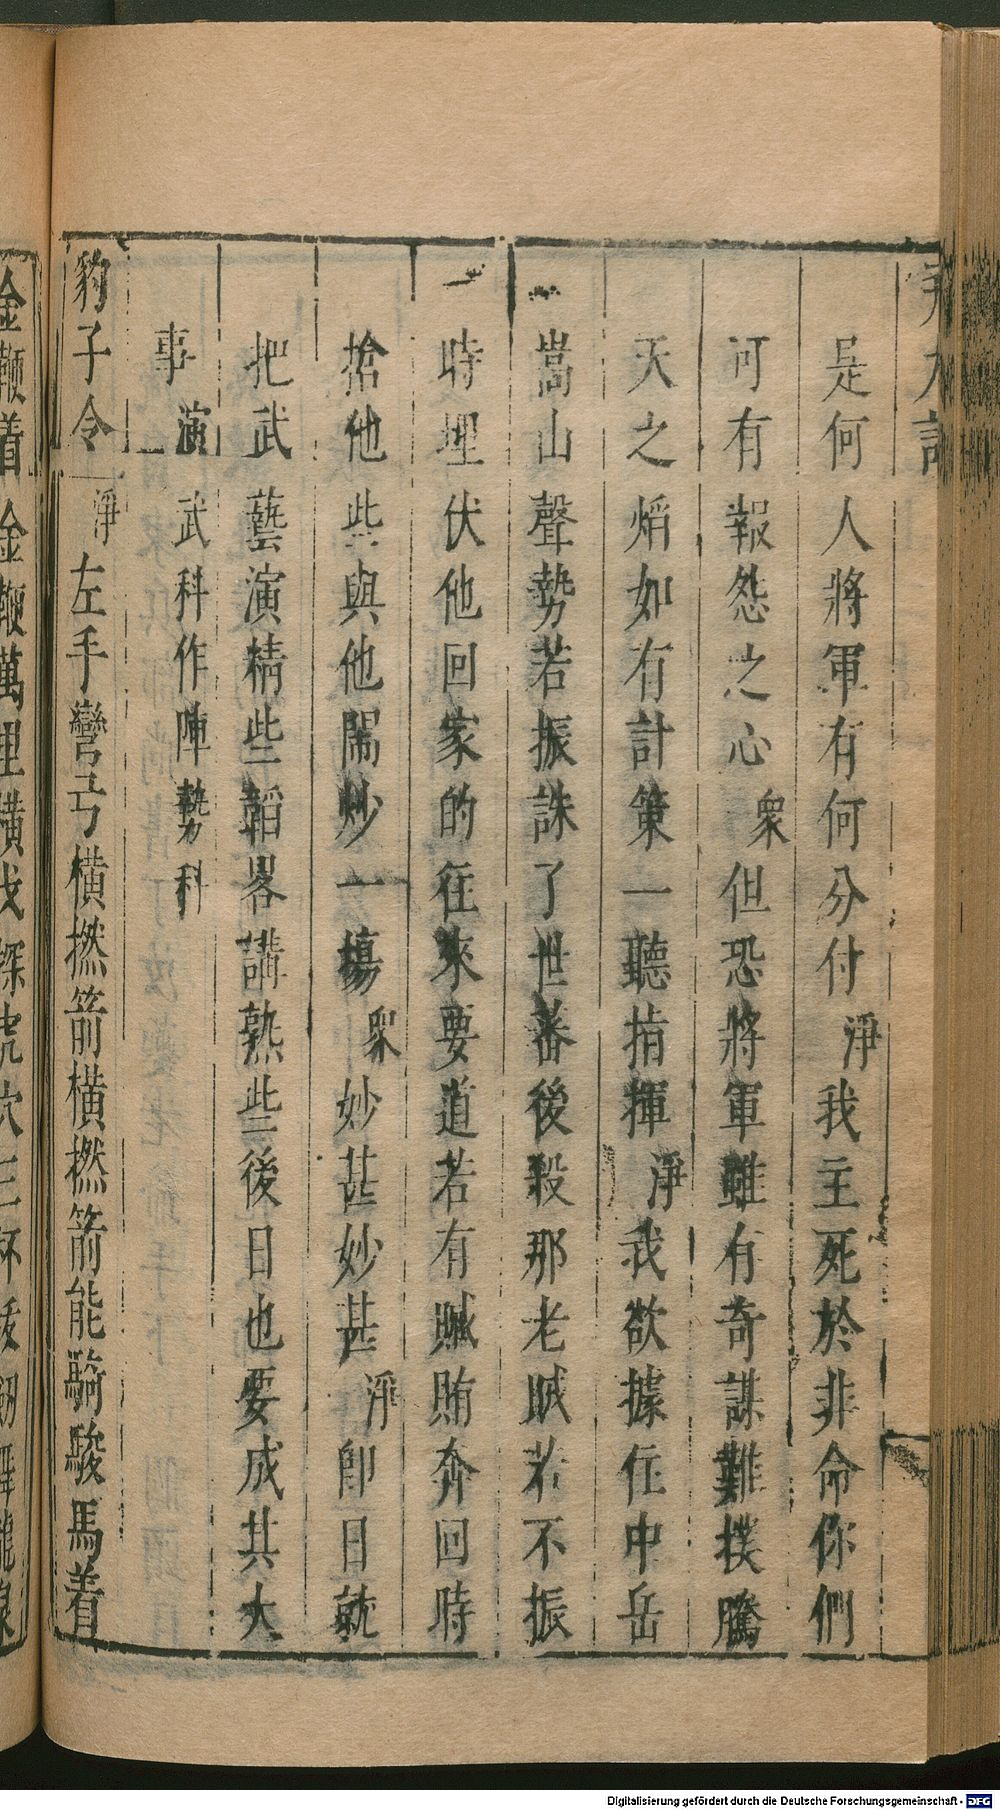 是何人將軍有何分付淨我主死於非命你們
可有報怨之心衆但恐將軍雖有奇謀難撲騰
天之焰如有計策一聽指揮淨我欲據住中岳
嵩山聲勢若振誅了世蕃後殺那老賊若不振
時埋伏他回家的徃來要道若有賍賄奔回時
搶他些與他鬧炒一塲衆妙甚妙甚淨卽日就
把武藝演精些韜畧講熟些後日也要成其大
事演武科作陣勢科
豹子令淨左手彎弓橫撚箭橫撚箭能騎駿馬着
金鞭着金鞭萬里橫戈探虎穴三杯
Digitalisierung gefördert durch die Deutsche Forschungsgemeinschaft - DFG